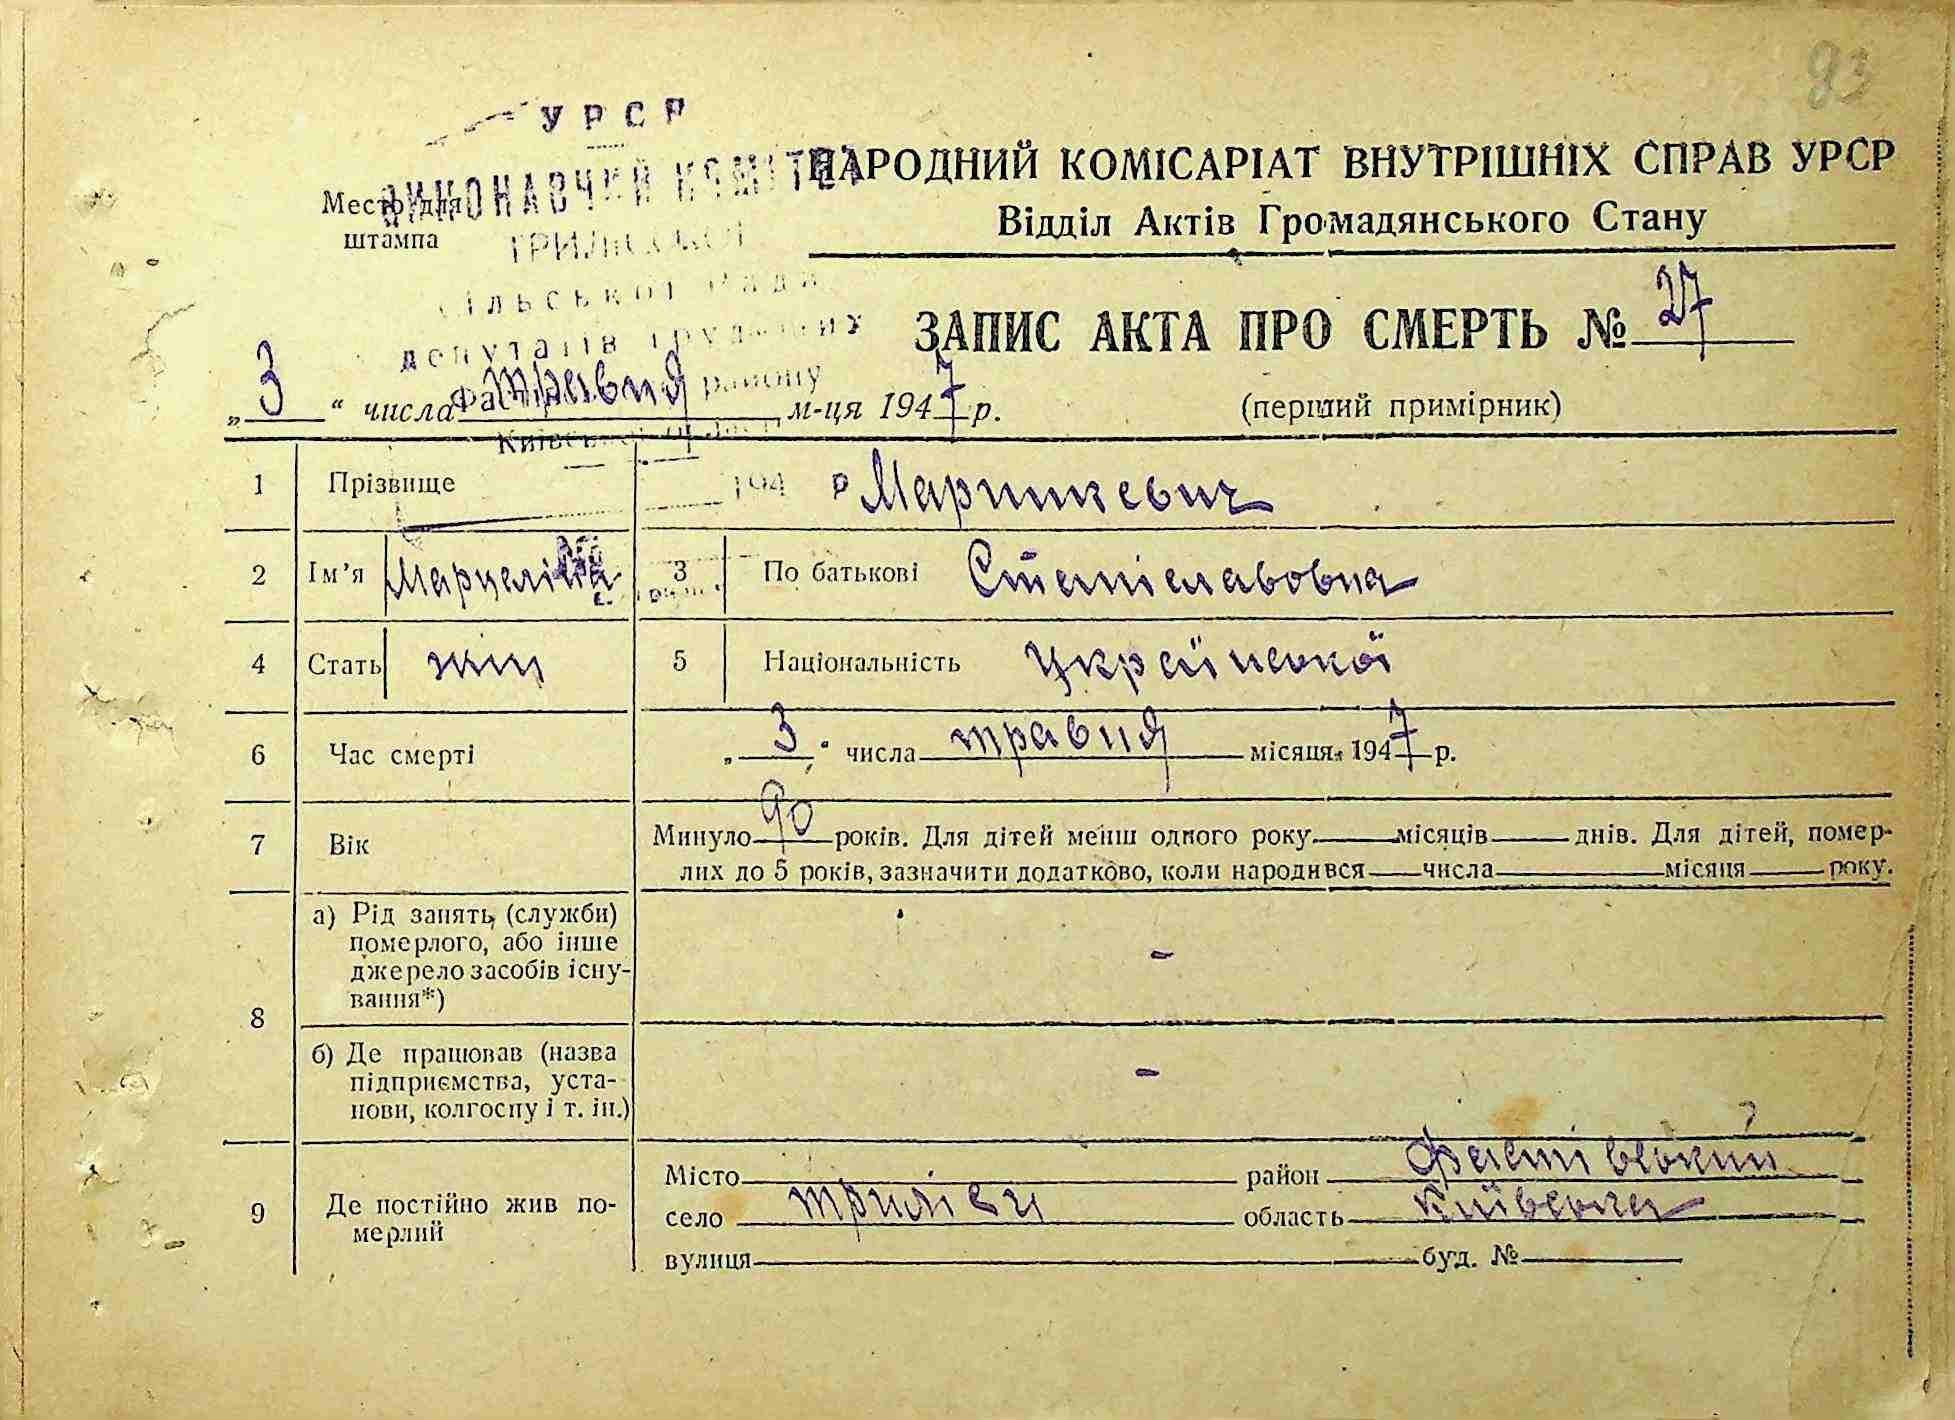 93
УРСР
ВИКОНАВЧИЙ КОМІТЕТ
НАРОДНИЙ КОМІСАРІАТ ВНУТРІШНІХ СПРАВ УРСР
Место для
штампа
Відділ Актів Громадянського Стану
сільської Ради
депутатів трудящих
ЗАПИС АКТА ПРО СМЕРТЬ № 27
району
„ 3 “ числа травня м-ця 1947 р.
(перший примірник)
Київської області
194 р
1 Прізвище Маришкевич
2 Ім’я Марцеліна 3 По батькові Станіславовна
4 Стать жін 5 Національність української
6 Час смерті „ 3 “ числа травня місяця 1947 р.
7 Вік Минуло 90 років. Для дітей менш одного року місяців днів. Для дітей, помер-
лих до 5 років, зазначити додатково, коли народився числа місяця року.
8 а) Рід занять (служби)
померлого, або інше
джерело засобів існу-
вання*) -
б) Де працював (назва
підприємства, уста-
нови, колгоспу і т. ін.) -
9 Де постійно жив по-
мерлий
Місто район Фастівський
село Триліси область Київська
вулиця буд. №